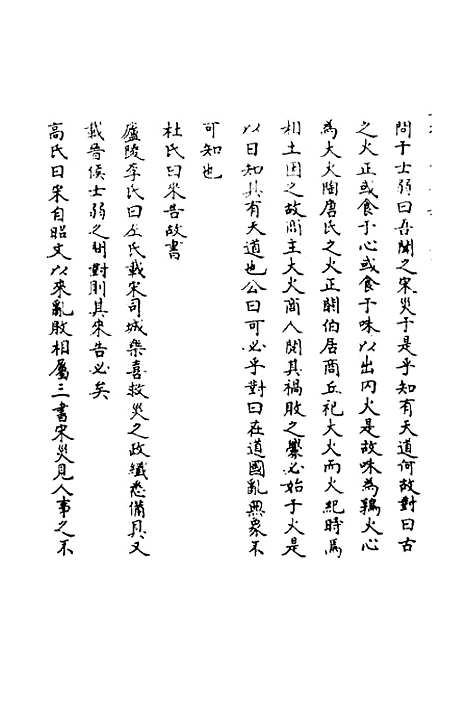 問于士弱曰吾聞之宋災于是乎知有天道何故對曰古
之火正或食于心或食于咮以出內火是故咮為鶉火心
為大火陶唐氏之火正閼伯居商丘祀大火而火紀時焉
相土因之故商主大火商人閱其禍敗之釁必始于火是
以日知其有天道也公曰可必乎對曰在道國亂無象不
可知也
杜氏曰來告故書
廬陵李氏曰左氏載宋司城樂喜救災之政纖悉備具又
載晉侯士弱之問對則其來告必矣
高氏曰宋自昭文以來亂敗相屬三書宋災見人事之不